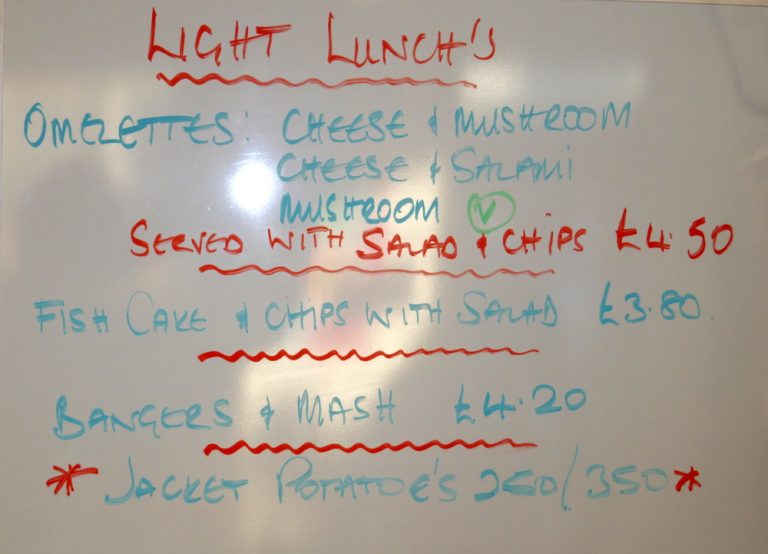 LIGHT LUNCH'S
OMELETTES: CHEESE & MUSHROOM
CHEESE & SALAMI
MUSHROOM V
SERVED WITH SALAD & CHIPS £4.50
FISH CAKE & CHIPS WITH SALAD £3.80.
BANGERS & MASH £4.20
* JACKET POTATOE'S 250/350 *